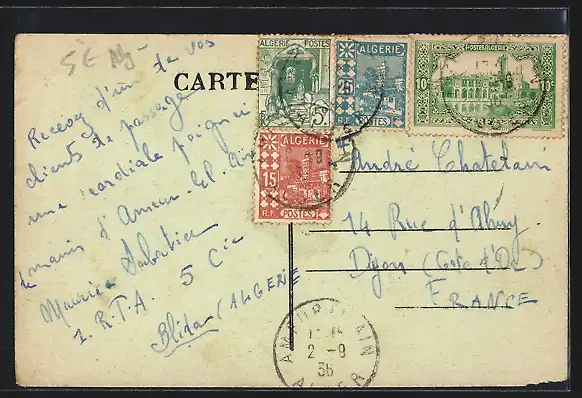 5€
CARTE
Recevez d'un de vos
clients de passage
une cordiale poignée
de mains d'Ameur-El-Aïn
Maurice
1. R.T.A. 5 Cie
Blida (ALGERIE
ALGERIE POSTES
5c
ALGERIE
25
R.F. POSTES
POSTES ALGERIE
10c 10c
ALGERIE
15
R.F. POSTES
André Chatelain
14 Rue d'Ahuy
Dijon (Côte d'Or)
FRANCE
AMEUR EL AIN
2-9
36
ALGER